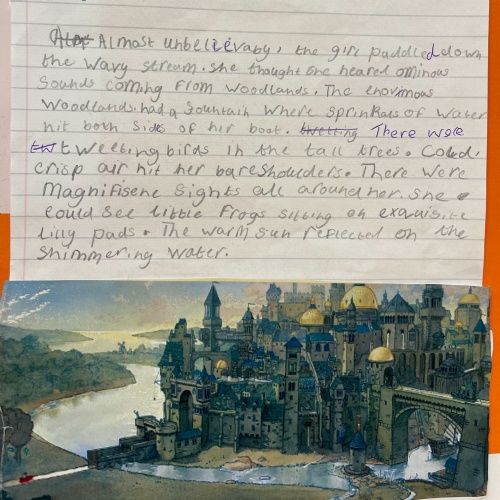 Almost unbelievably, the girl paddled down
the wavy stream. She thought she heared ominous
sounds coming from woodlands. The enovimous
woodlands had a fountain where sprinkals of water
hit both sides of her boat. There were
tweeting birds in the tall trees. Cold,
crisp air hit her bare shoulders. There were
Magnifisene sights all around her. She
could see little frogs sitting on exquisite
lilly pads. The warm sun reflected on the
shimmering water.